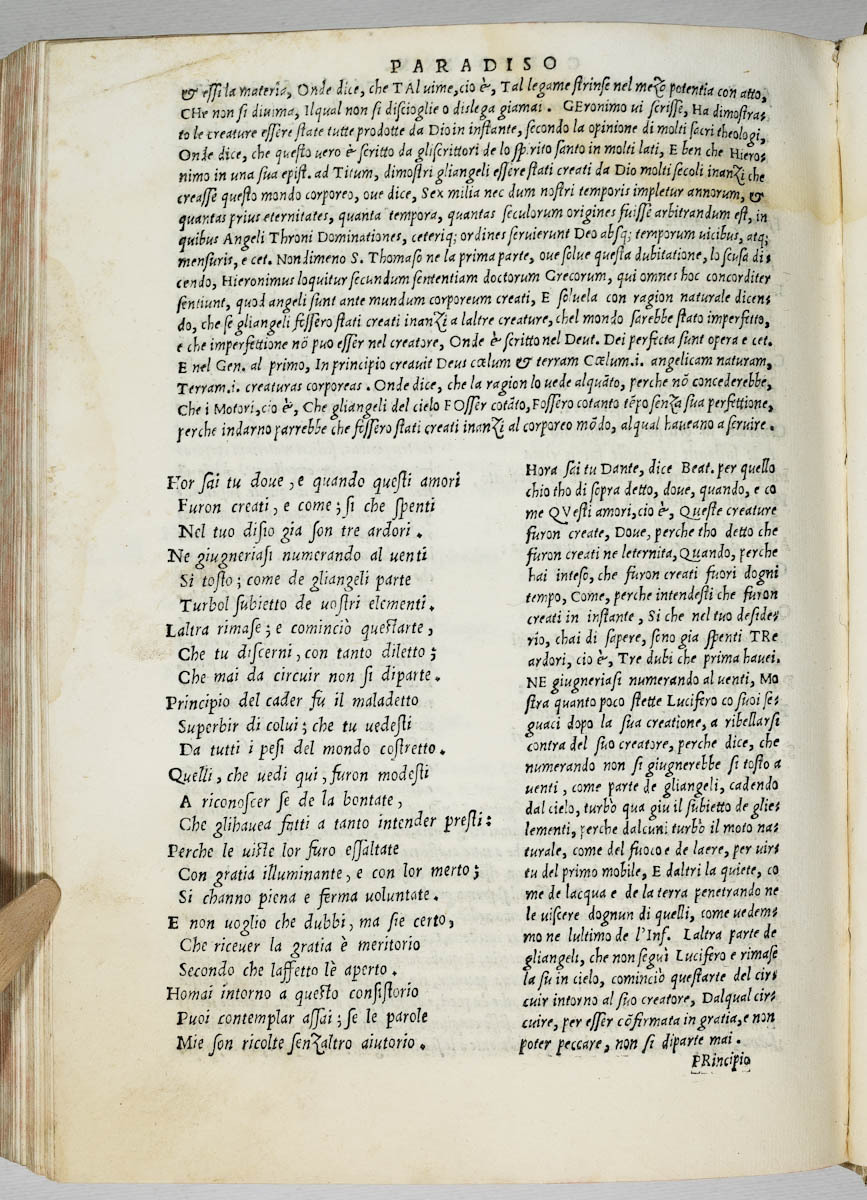 PARADISO
& essi la materia, Onde dice, che TAl uime, cio è, Tal legame strinse nel mezo potentia con atto,
CHe non si diuima, Ilqual non si discioglie o dislega giamai. GEronimo ui scrisse, Ha dimostra=
to le creature essere state tutte prodotte da Dio in instante, secondo la opinione di molti sacri theologi,
Onde dice, che questo uero è scritto da gliscrittori de lo spirito santo in molti lati, E ben che Hiero=
nimo in una sua epist. ad Titum, dimostri gliangeli essere stati creati da Dio molti secoli inanzi che
creasse questo mondo corporeo, oue dice, Sex milia nec dum nostri temporis impletur annorum, &
quantas prius eternitates, quanta tempora, quantas seculorum origines fuisse arbitrandum est, in
quibus Angeli Throni Dominationes, ceteriq; ordines seruierunt Deo absq; temporum uicibus, atq;
mensuris, e cet. Nondimeno S. Thomaso ne la prima parte, oue solue questa dubitatione, lo scusa di=
cendo, Hieronimus loquitur secundum sententiam doctorum Grecorum, qui omnes hoc concorditer
sentiunt, quod angeli sunt ante mundum corporeum creati, E soluela con ragion naturale dicen=
do, che se gliangeli fossero stati creati inanzi a laltre creature, chel mondo sarebbe stato imperfetto,
e che imperfettione nõ puo esser nel creatore, Onde è scritto nel Deut. Dei perfecta sunt opera e cet.
E nel Gen. al primo, In principio creauit Deus cœlum & terram Cœlum.i. angelicam naturam,
Terram.i. creaturas corporeas. Onde dice, che la ragion lo uede alquãto, perche nõ concederebbe,
Che i Motori, cio è, Che gliangeli del cielo FOsser cotãto, Fossero cotanto tẽpo senza sua perfettione,
perche indarno parrebbe che fossero stati creati inanzi al corporeo mõdo, alqual haueano a seruire.
Hor sai tu doue, e quando questi amori
Furon creati, e come; si che spenti
Nel tuo disio gia son tre ardori.
Ne giugneriasi numerando al uenti
Si tosto; come de gliangeli parte
Turbol subietto de uostri elementi.
Laltra rimase; e cominciò questarte,
Che tu discerni, con tanto diletto;
Che mai da circuir non si diparte.
Principio del cader fu il maladetto
Superbir di colui; che tu uedesti
Da tutti i pesi del mondo costretto.
Quelli, che uedi qui, furon modesti
A riconoscer se de la bontate,
Che glihauea fatti a tanto intender presti:
Perche le uiste lor furo essaltate
Con gratia illuminante, e con lor merto;
Si channo piena e ferma voluntate.
E non uoglio che dubbi, ma sie certo,
Che riceuer la gratia è meritorio
Secondo che laffetto lè aperto.
Homai intorno a questo consistorio
Puoi contemplar assai; se le parole
Mie son ricolte senzaltro aiutorio.
Hora sai tu Dante, dice Beat. per quello
chio tho di sopra detto, doue, quando, e co
me QVesti amori, cio è, Queste creature
furon create, Doue, perche tho detto che
furon creati ne leternita, Quando, perche
hai inteso, che furon creati fuori dogni
tempo, Come, perche intendesti che furon
creati in instante, Si che nel tuo deside=
rio, chai di sapere, sono gia spenti TRe
ardori, cio è, Tre dubi che prima hauei.
NE giugneriasi numerando al uenti, Mo
stra quanto poco stette Lucifero co suoi se=
guaci dopo la sua creatione, a ribellarsi
contra del suo creatore, perche dice, che
numerando non si giugnerebbe si tosto a
uenti, come parte de gliangeli, cadendo
dal cielo, turbò qua giu il subietto de glie=
lementi, perche dalcuni turbò il moto na=
turale, come del fuoco e de laere, per uir=
tu del primo mobile, E daltri la quiete, co
me de lacqua e de la terra penetrando ne
le uiscere dognun di quelli, come uedem=
mo ne lultimo de l'Inf. Laltra parte de
gliangeli, che non seguì Lucifero e rimase
la su in cielo, cominciò questarte del cir=
cuir intorno al suo creatore, Dalqual cir=
cuire, per esser cõfirmata in gratia, e non
poter peccare, non si diparte mai.
PRincipio